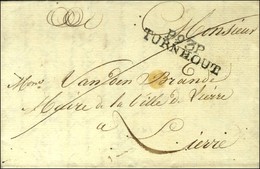 Monsieur
P93P
TURNHOUT
Mons. Van den Brande
Maire de la Ville de Lierre
a
Lierre